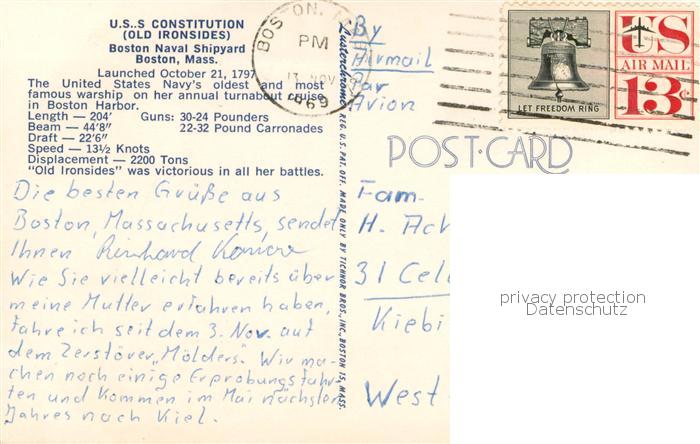 U.S..S CONSTITUTION
(OLD IRONSIDES)
Boston Naval Shipyard
Boston, Mass.
Launched October 21, 1797
The United States Navy's oldest and most
famous warship on her annual turnabout cruise
in Boston Harbor.
Length — 204' Guns: 30-24 Pounders
Beam — 44'8" 22-32 Pound Carronades
Draft — 22'6"
Speed — 13½ Knots
Displacement — 2200 Tons
"Old Ironsides" was victorious in all her battles.
Die besten Grüße aus
Boston, Massachusetts, sendet
Ihnen Reinhard
Wie Sie vielleicht bereits über
meine Mutter erfahren haben,
fahre ich seit dem 3. Nov. auf
dem Zerstörer "Mölders". Wir ma-
chen noch einige Erprobungsfahr-
ten und kommen im Mai nächsten
Jahres nach Kiel.
Lusterchrome REG. U.S. PAT. OFF. MADE ONLY BY TICHNOR BROS., INC., BOSTON 15, MASS.
BOSTON,
PM
13 NOV
1969
By
Airmail
Par
Avion
LET FREEDOM RING
US
AIR MAIL
13¢
POST CARD
Fam.
H. Ach
31 Cel
Kiebi
West
privacy protection
Datenschutz